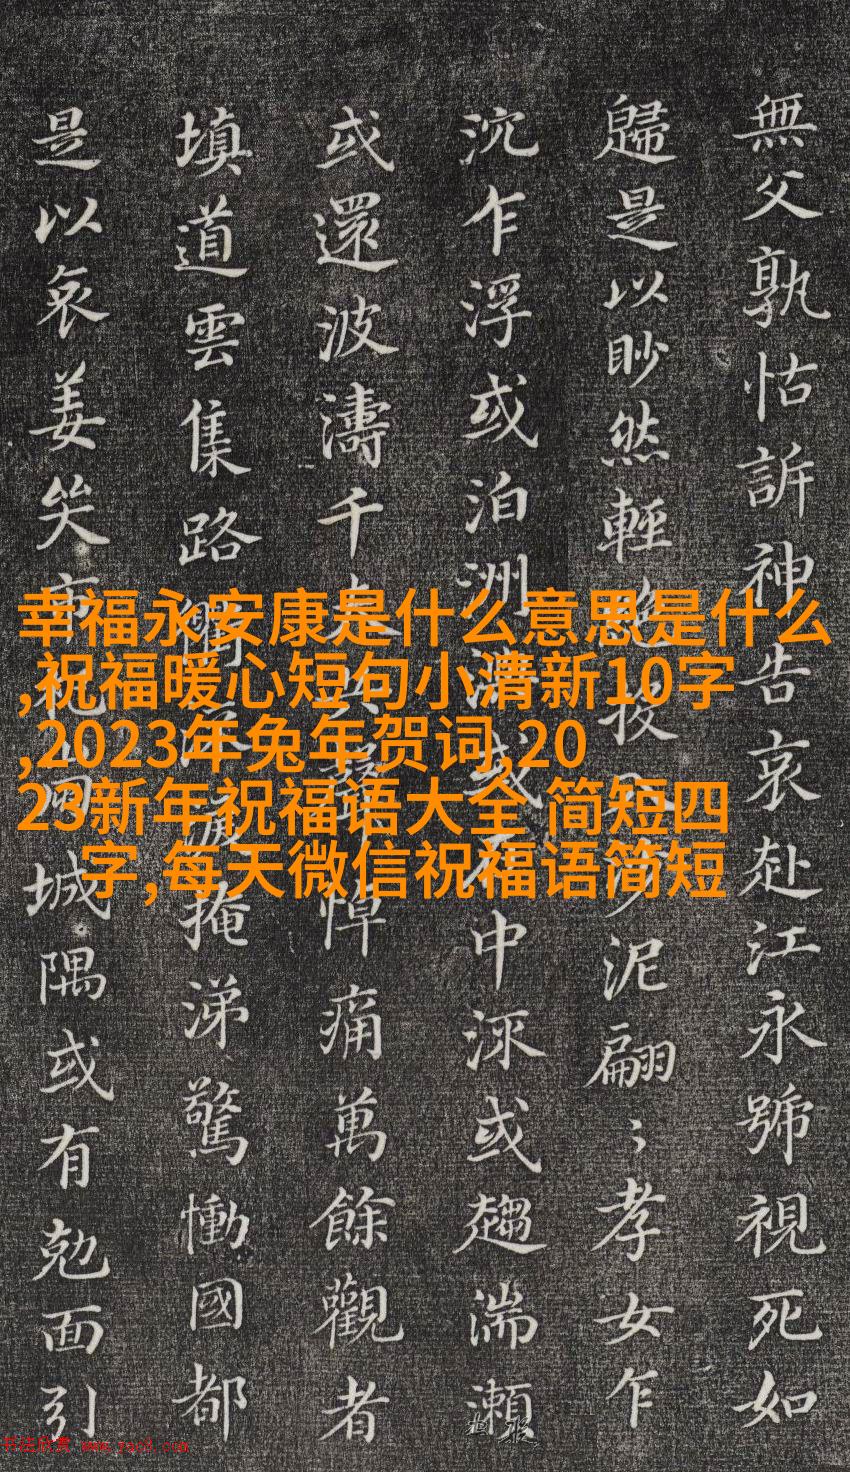 無父孰怙訴神告哀赴江永號視死如
歸是以眇然輕絶投入沙泥翩〻孝女乍
沉乍浮或泊洲渚或在中流或趨湍瀨
或還波濤千夫失聲悼痛萬餘觀者
填道雲集路衢流淚掩涕驚慟國都
是以哀姜哭市杞崩城隅或有勊面引
幸福永安康是什么意思是什么
,祝福暖心短句小清新10字
,2023年兔年贺词,20
23新年祝福语大全 简短四
字,每天微信祝福语简短
书法欣赏 www.yac8.com